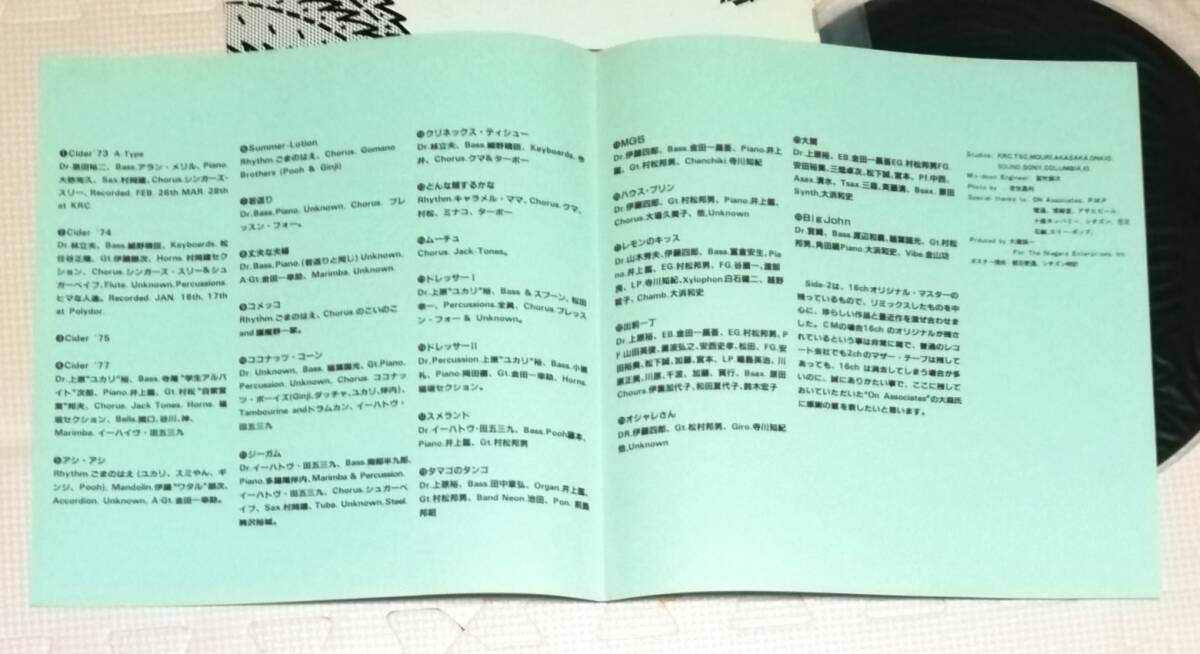 ❶Cider '73 A·Type
Dr.原田裕二、Bass.アラン・メリル、Piano.
大野克久、Sax.村岡健、Chorus.シンガーズ・
スリー、Recorded. FEB. 26th MAR. 28th
at KRC.
❷Cider '74
Dr.林立夫、Bass.細野晴臣、Keyboards.松
任谷正隆、Gt.伊藤銀次、Horns.村岡健セク
ション、Chorus.シンガーズ・スリー&シュ
ガーベイブ、Flute. Unknown. Percussions.
ヒマな人達。Recorded. JAN. 16th. 17th
at Polydor.
❸Cider '75
❹Cider '77
Dr.上原"ユカリ"裕、Bass.寺尾"学生アルバ
イト"次郎、Piano.井上鑑、Gt.村松"自家営
業"邦夫、Chorus. Jack Tones、Horns.
セクション、Bells.谷川、
Marimba. イーハイヴ・田五三九
❺アシ・アシ
Rhythm.ごまのはえ(ユカリ、スミやん、ギ
ンジ、Pooh)、Mandolin.伊藤"ワタル"銀次、
Accordion. Unknown, A·Gt.金田一幸助。
Summer-Lotion
Rhythm.ごまのはえ、Chorus. Gomano
Brothers (Pooh & Ginji)
若返り
Dr.Bass.Piano. Unknown, Chorus. ブレ
ッスン・フォー。
丈夫な夫婦
Dr.Bass.Piano.(若返りと同じ) Unknown,
A·Gt.金田一幸助、Marimba. Unknown.
コメッコ
Rhythm.ごまのはえ、Chorus.のこいのこ
and 一家。
ココナッツ・コーン
Dr. Unknown, Bass. 稲葉国光、Gt.Piano.
Percussion. Unknown, Chorus. ココナッ
ツ・ボーイズ(Ginji,ダッチャ、ユカリ、伴内)、
Tambourine andドラムカン、イーハトヴ・
田五三九
ジーガム
Dr.イーハトヴ・田五三九、Bass.
Piano.多羅尾伴内、Marimba & Percussion.
イーハトヴ・田五三九、Chorus. シュガーベ
イブ、Sax.村岡健、Tuba. Unknown. Steel.
駒沢裕城。
クリネックス・ティシュー
Dr.林立夫、Bass.細野晴臣、Keyboards.今
井、Chorus.クマ&ターボー
どんな顔するかな
Rhythm.キャラメル・ママ、Chorus.クマ、
村松、ミナコ、ターボー
ムーチュ
Chorus. Jack-Tones。
ドレッサーI
Dr.上原"ユカリ"裕、Bass & スプーン、松田
幸一、Percussions.全員、Chorus.ブレッス
ン・フォー & Unknown。
ドレッサーII
Dr.Percussion.上原"ユカリ"裕、Bass.小原
礼、Piano.岡田徹、Gt.金田一幸助、Horns.
セクション。
スメランド
Dr.イーハトヴ・田五三九、Bass.Pooh藤本、
Piano.井上鑑、Gt.村松邦男
タマゴのタンゴ
Dr.上原裕、Bass.田中章弘、Organ.井上鑑、
Gt.村松邦男、Band Neon.池田、Pon.
邦絽
MG5
Dr.伊藤四郎、Bass.金田一昌吾、Piano.井上
鑑、Gt.村松邦男、Chanchiki.寺川知紀
ハウス・プリン
Dr.伊藤四郎、Gt.村松邦男、Piano.井上鑑、
Chorus.大場久美子、他,Unknown
レモンのキッス
Dr.山木秀夫、伊藤四郎、Bass.冨倉安生、Pia
no.井上鑑、EG.村松邦男、FG.谷康一、渡部
良、LP.寺川知紀、Xylophon.白石健二、越野
紋子、Chamb.大浜和史
出前一丁
Dr.上原裕、EB.金田一昌吾、EG.村松邦男、P
F.山田英俊、難波弘之、安西史孝、松田、FG.安
田裕美、松下誠、加藤、宮本、LP.鳴島英治、川
原正美、川原、千波、加藤、賀行、Bsax. 原田
Chours.伊集加代子、和田夏代子、鈴木宏子
オシャレさん
DR.伊藤四郎、Gt.松村邦男、Giro.寺川知紀
他,Unknown
大関
Dr.上原裕、EB.金田一昌吾EG.村松邦男FG.
安田裕美、三畑卓次、松下誠、宮本、Pf.中西、
Asax.清水、Tsax.三森、斉藤清、Bsax. 原田
Synth.大浜和史
Big John
Dr.宮崎、Bass.渡辺和義、稲葉国光、Gt.村松
邦男、角田順Piano.大浜和史、Vibe.金山功
Side-2は、16chオリジナル・マスターの
残っているもので、リミックスしたものを中
心に、珍らしい作品と最近作を混ぜ合わせま
した。CMの場合16chのオリジナルが残さ
れているという事は非常に稀で、普通のレコ
ード会社でも2chのマザー・テープは残して
あっても、16chは消去してしまう場合が多
いのに、誠にありがたい事で、ここに残して
おいていただいた"On Associates"の大森氏
に感謝の意を表したいと思います。
Studios. KRC,TSC,MOURI,AKASAKA,ONKIO
SOUND,SONY,COLUMBIA,他
Mix-down Engineer.
Photo by
Special thanks to ON Associates, P.M.P.
電通、博報堂、アサヒビール、
十條キンバリー、シチズン、花王
石鹸、ロミー・ポップ、
Produced by 大瀧詠一
For The Niagara Enterprises, Inc
ポスター提供 朝日麦酒、シチズン時計